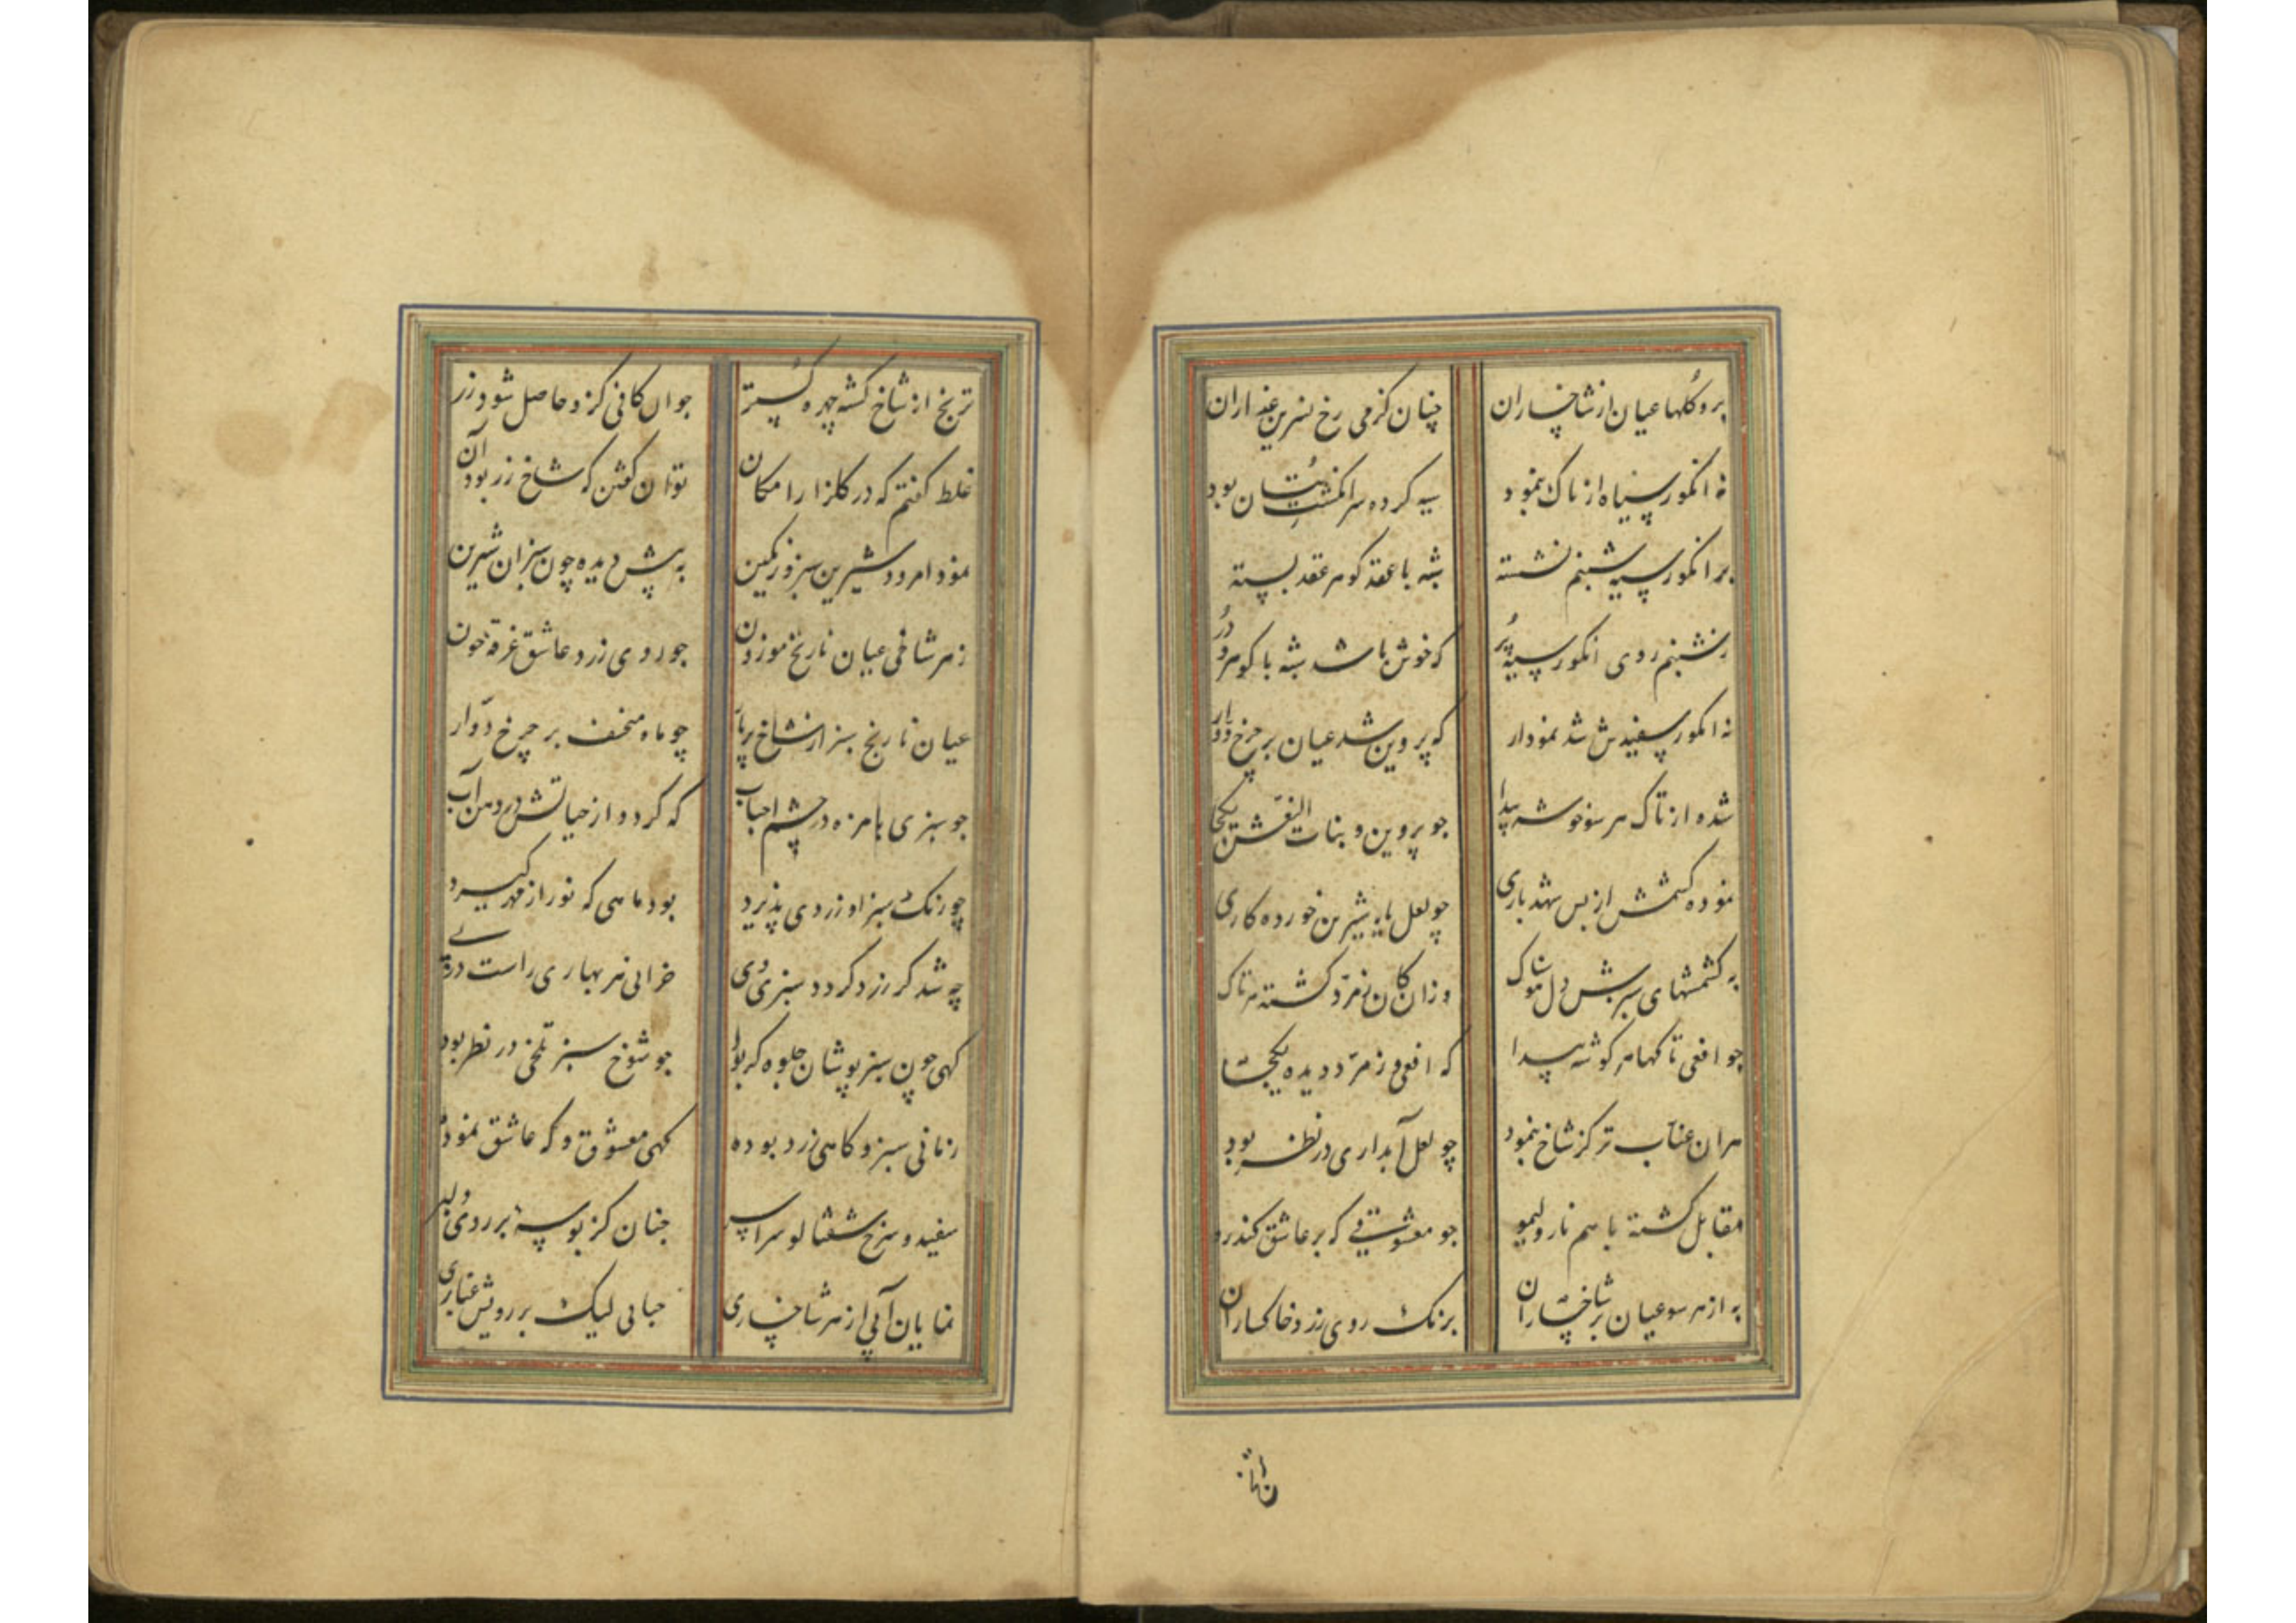 برو گلها عیان از شاخساران چنان کز می رخ نسرین عذاران
نه انکور سیاه از تاک بنمود سیه کرده سر انکشت بتان بود
بر انکور سیه شبنم نشسته شبه با عقد کوهر عقد بسته
ز شبنم روی انکور سیه پر که خوش باشد شبه با کوهر و در
نه انکور سفیدش شد نمودار که پروین شد عیان بر چرخ دوار
شده از تاک هر سو خوشه پیدا جو پروین و بنات النعش یکجا
نموده کشمش از بس شهد باری چو لعل یار شیرین خورده کاری
به کشمشهای سبزش دل وزان کان زمرد کشته هر تاک
چو افعی تاکها هر کوشه پیدا که افعی و زمرد دیده یکجا
هر ان عناب تر کز شاخ بنمود چو لعل آبداری در نظر بود
مقابل کشته با هم نار و لیمو جو معشوقی که بر عاشق کند رو
به از هر سو عیان بر شاخساران برنک روی زرد خاکساران
ترنج از شاخ کشته چهره کستر جو ان کانی کزو حاصل شود زر
غلط کفتم که در کلزار امکان توان کفتن که شاخ زر بود آن
نمود امرود شیرین سبز و زنکین به پیش دیده چون سبزان شیرین
ز هر شاخی عیان نارنج موزون جو روی زرد عاشق غرقه خون
عیان نارنج سبز از شاخ پربار چو ماه منخسف بر چرخ دوار
جو سبزی بامزه در چشم احباب که کردد از خیالش در دهن آب
چو رنک سبز او زردی پذیرد بود ماهی که نور از مهر کیرد
چه شد کر زرد کردد سبزی وی خزانی هر بهاری راست در پی
کهی چون سبز پوشان جلوه کر بود جو شوخ سبز تلخی در نظر بود
زمانی سبز و کاهی زرد بوده کهی معشوق و که عاشق نموده
سفید و سرخ شفتالو سراسر جنان کز بوسه بر روی دلبر
نمایان آبی از هر شاخساری حبابی لیک بر رویش غباری